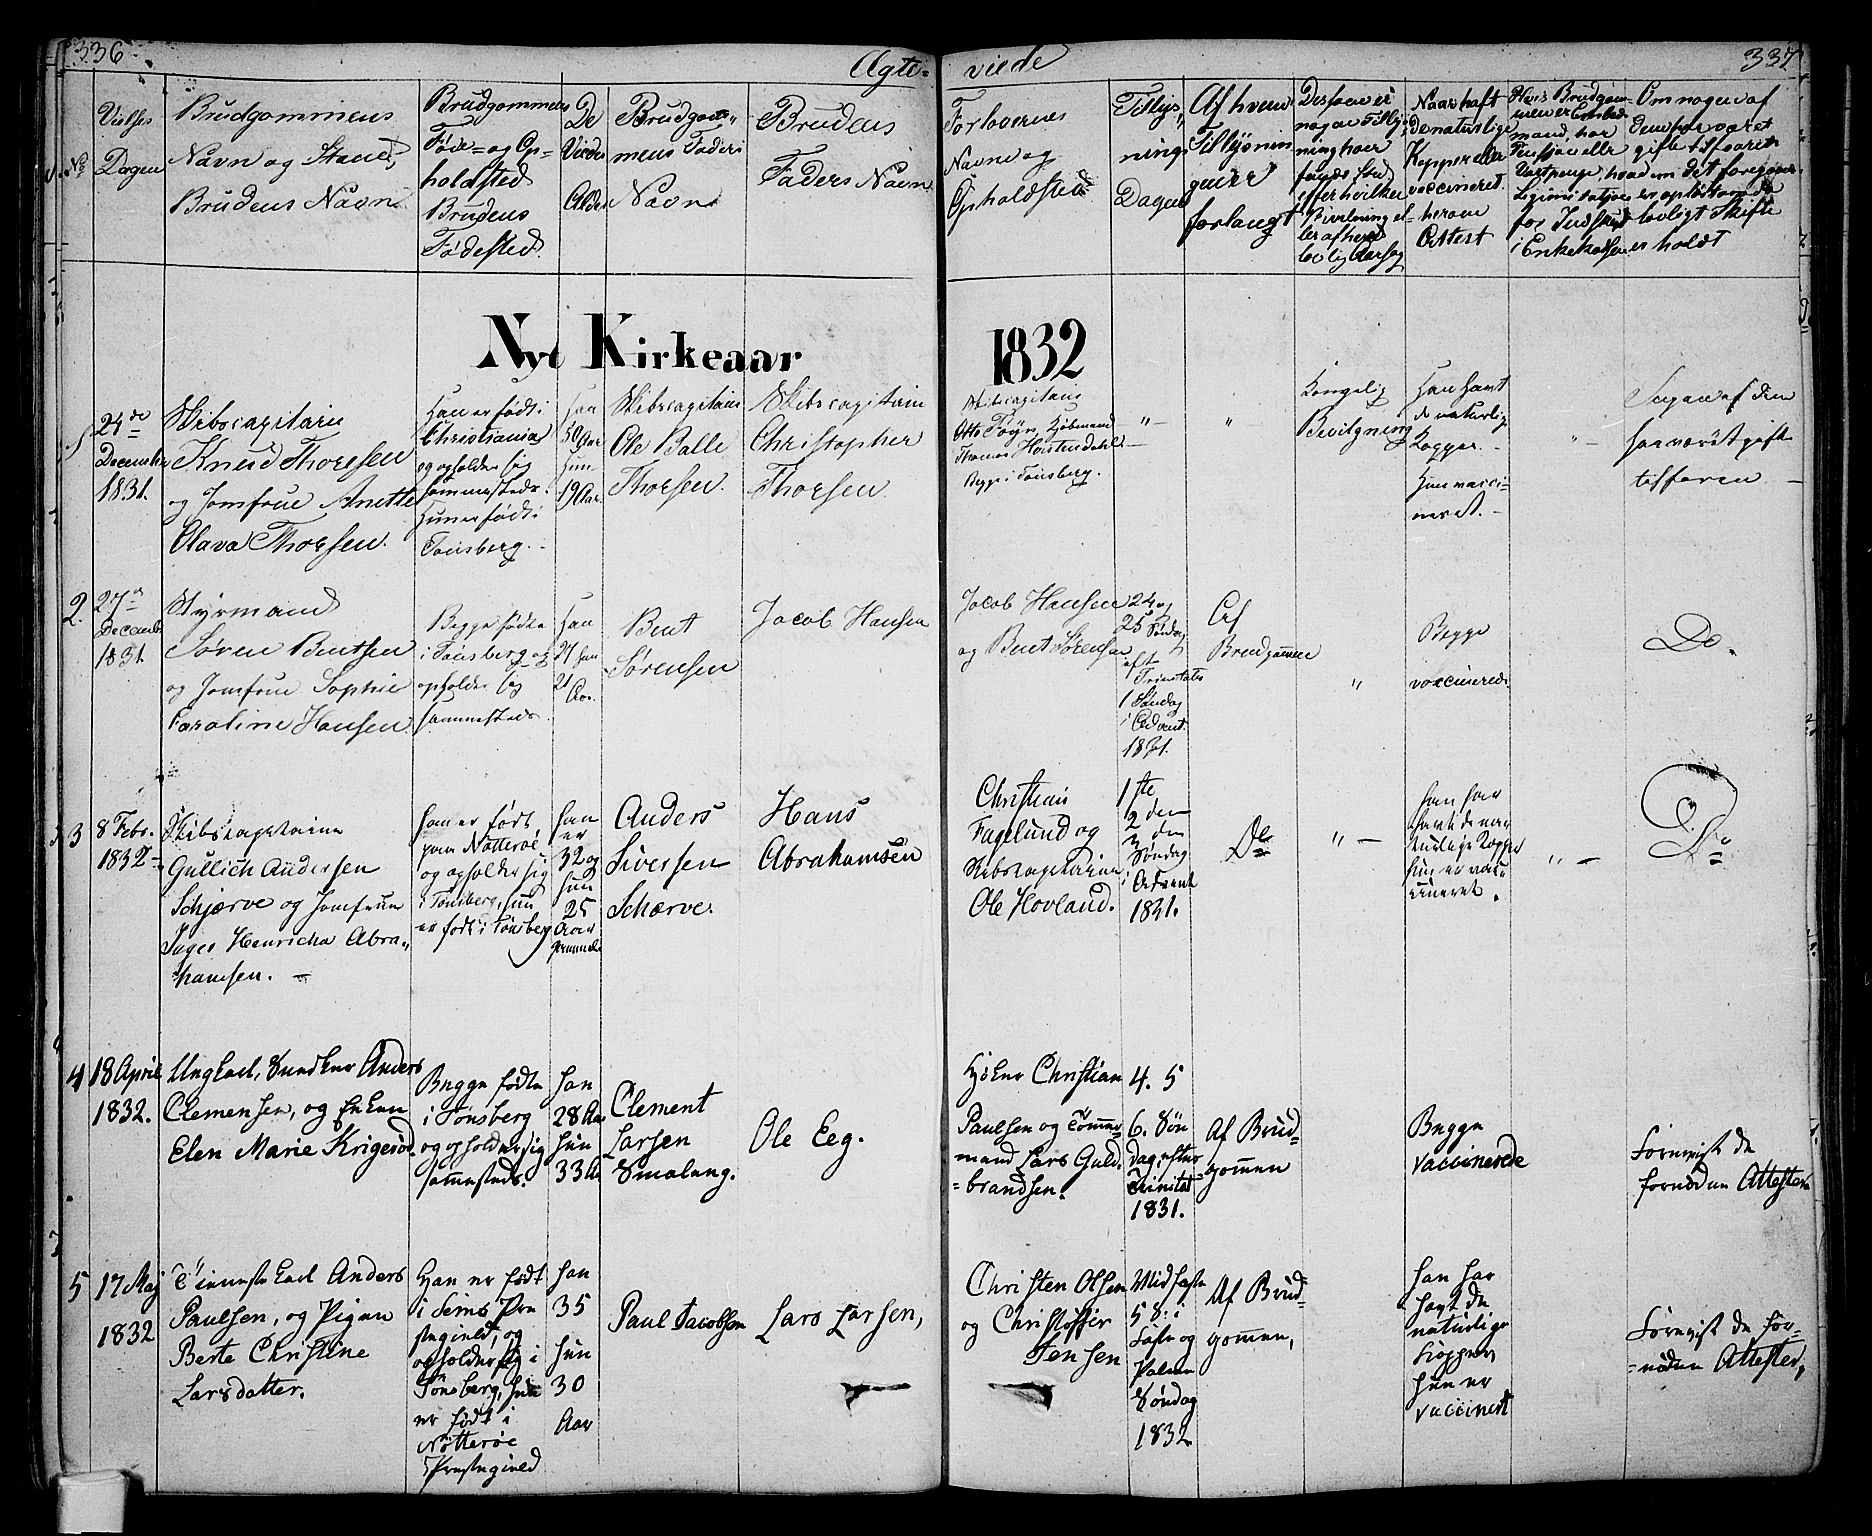 336
Ægte=
viede
337
No
Vielses
Dagen
Brudgommens
Navn og Stand,
Brudens Navn
Brudgommens
Føde= og Op-
holdsted
Brudens
Fødested
De
Viedes
Alder
Brudgom-
mens Faders
Navn
Brudens
Faders Navn
Forlovernes
Navne og
Opholdsted
Tillys-
nings
Dagene
Af hvem
Tillysnin
gen er
forlangt
Dersom ei
nogen Tillys
ning har
fundet Sted
efter hvilken
Bevilgning el-
ler af hvad
lovlig Aarsag
Naar haft
de naturlige
Kopper eller
vaccineret.
herom
Attest
Hvis Brudgom-
men er
mand, har
for Indførsel
i Enkekassen
Om nogen af
dem før været
gift tilforn
hvad om det foregaaen
er opløst om der
lovligt Skifte
er holdt
Nyt Kirkeaar
1832
1
24de
December
1831.
Skibscapitain
Knud Thoresen
og Jomfrue Anette
Olava Thorsen.
Han er født i
Christiania
og opholder sig
sammesteds.
Hun er født i
Tønsberg.
Han
30 Aar
Hun
19 Aar.
Skibscapitain
Ole Balle
Thorsen.
Skibscapitain
Christopher
Thorsen.
Skibscapitain
Otto Føyn, Kjøbmand
Thomas
Begge i Tønsberg.
"-
"
Kongelig
Bevilgning
Han havt
de naturlige
Kopper.
Hun vacci=
neret.
"-
Ingen af dem
har været gift
tilforen
2.
27de
Decemb.
1831.
Styrmand
Søren Bentsen
og Jomfrue Sophie
Caroline Hansen
Begge fødte
i Tønsberg og
opholder sig
sammesteds.
Han
24 Hun
21
Aar.
Bent
Sørensen
Jacob Hansen
Jacob Hansen
og Bent Sørensen
24 og
25 Søndag
eft
Trinitatis
1 Søndag
i Advent.
1831.
Af
Brudgommen
"
Begge
vaccinerede.
Do.
3
8 Febr.
1832
Skibskaptaine
Gullich Andersen
Schjerve og Jomfrue
Inger Henricha Abra„
hamsen.
han er født
paa Nötteröe
og opholder sig
i Tönsberg, hun
er født i Tönsberg
han
er
32 og
hun
25
Aar
gammel
Anders
Siversen
Schærve.
Hans
Abrahamsen
Christian
Fagelund og
Skibscaptaine
Ole Hovland.
1ste
2den
3den
Søndag
i Advent
1831.
Do
"-
han har
havt de na-
turlige Kopper
hun er vacci
neret.
"-
Do
4
18 April
1832.
Ungkarl, Snedker Anders
Clemensen, og Enken
Elen Marie Krigerød.
Begge fødte
i Tønsberg
og opholder sig
sammesteds.
han
28 Aar
hun
33 Aar
Clement
Larsen
Smalung.
Ole Eeg.
Høker Christian
Paulsen og Tømmer=
mand Lars Guld=
=brandsen.
4. 5
6. Søn
dag efter
Trinitat
1831.
Af Brud=
gommen
Begge
vaccinerede
Forevist de
fornødne Attester
5
17 Maj
1832
Tieneste Karl Anders
Paulsen, og Pigen
Berte Christine
Larsdatter.
Han er født
i Sems Præ
stegield, og
opholder sig i
Tönsberg, hun
er født i
Nötteröe
Præstegield
han
35
hun
30
Aar
Paul Jacobsen
Lars Larsen,
Christen Olsen
og Christoffer
Jensen
Midfaste
5 S: i
Faste og
Palme
Søndag
1832
Af Brud=
gommen,
han har
havt de
naturlige
Kopper,
hun er
vaccineret
Forevist de for=
=nødne Attester,